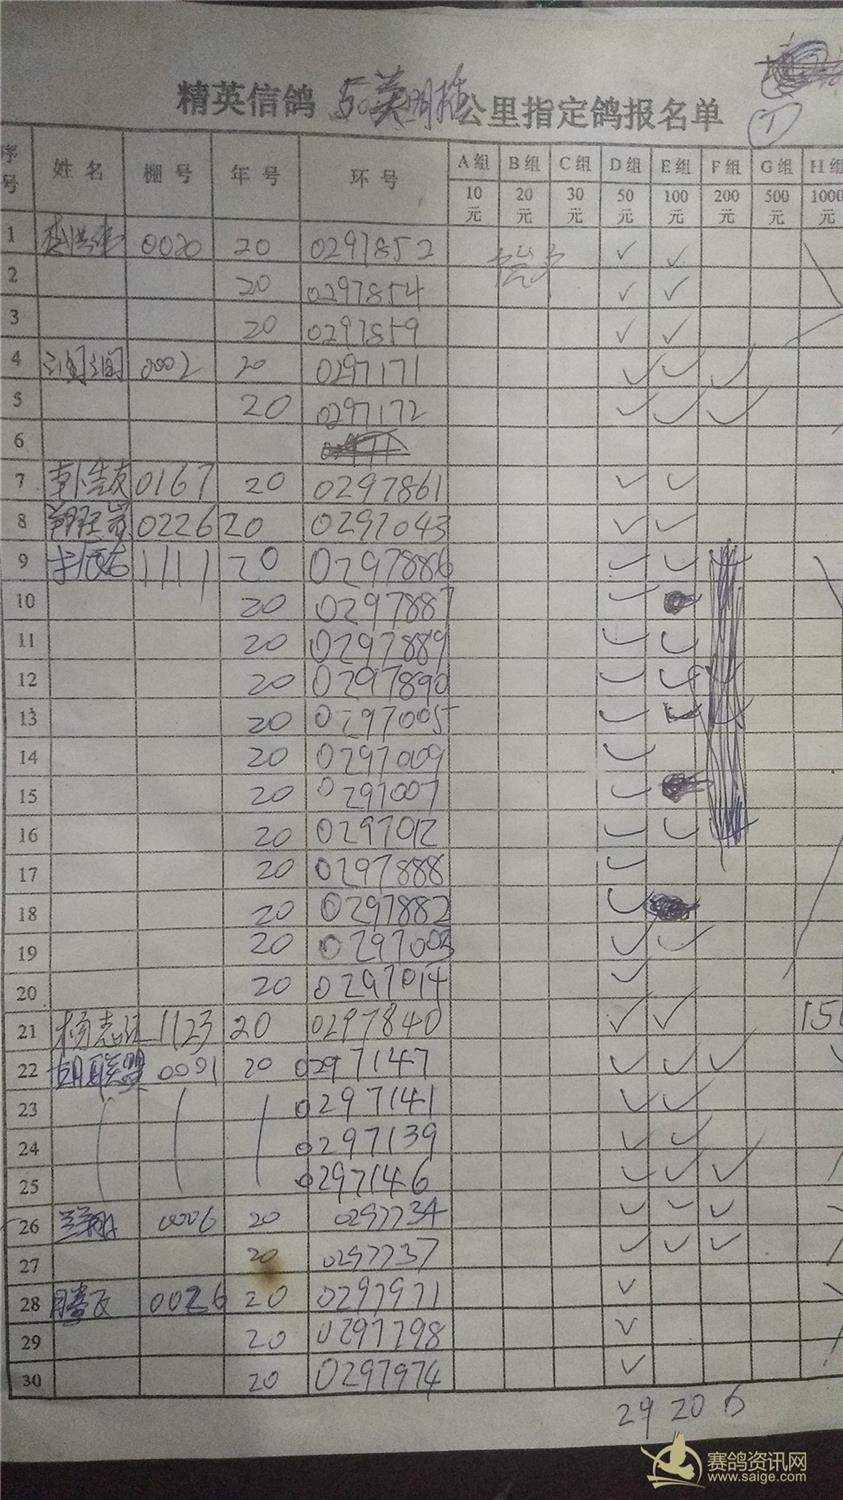 精英信鸽 公里指定鸽报名单
序号 姓名 棚号 年号 环号 A组 B组 C组 D组 E组 F组 G组 H组
10元 20元 30元 50元 100元 200元 500元 1000
1 0020 20 0297852 ✓ ✓
2 20 0297854 ✓ ✓
3 20 0297859 ✓ ✓
4 0002 20 0297171 ✓ ✓ ✓
5 20 0297172 ✓ ✓ ✓
6
7 0167 20 0297861 ✓ ✓
8 0226 20 0297043 ✓ ✓
9 1111 20 0297886 ✓ ✓
10 20 0297887 ✓
11 20 0297889 ✓ ✓
12 20 0297890 ✓ ✓
13 20 0297005 ✓ ✓
14 20 0297009 ✓
15 20 0297007 ✓
16 20 0297012 ✓ ✓
17 20 0297888 ✓
18 20 0297882 ✓
19 20 0297003 ✓ ✓
20 20 0297014 ✓
21 杨志 1123 20 0297840 ✓ ✓ 150
22 胡联盟 0091 20 0297147 ✓ ✓ ✓
23 0297141 ✓ ✓
24 0297139 ✓ ✓
25 0297146 ✓ ✓ ✓
26 兰翔 0006 20 0297734 ✓ ✓ ✓
27 20 0297737 ✓ ✓ ✓
28 腾飞 0026 20 0297971 ✓
29 20 0297798 ✓
30 20 0297974 ✓
29 20 6
赛鸽资讯网
www.saige.com